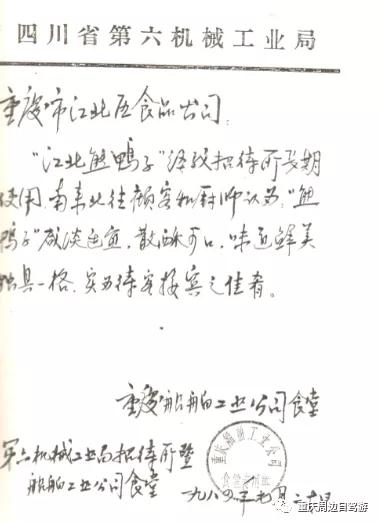 四川省第六机械工业局
重庆市江北区食品公司：
"江北熊鸭子"经我招待所长期
使用，南来北往顾客和厨师认为，"熊
鸭子"咸淡适宜，散酥可口，味道鲜美
独具一格，实为待客接宾之佳肴。
重庆船舶工业公司食堂
第六机械工业局招待所暨
船舶工业公司食堂
重庆船舶工业公司
一九八 年七月二十日
重庆周边自驾游